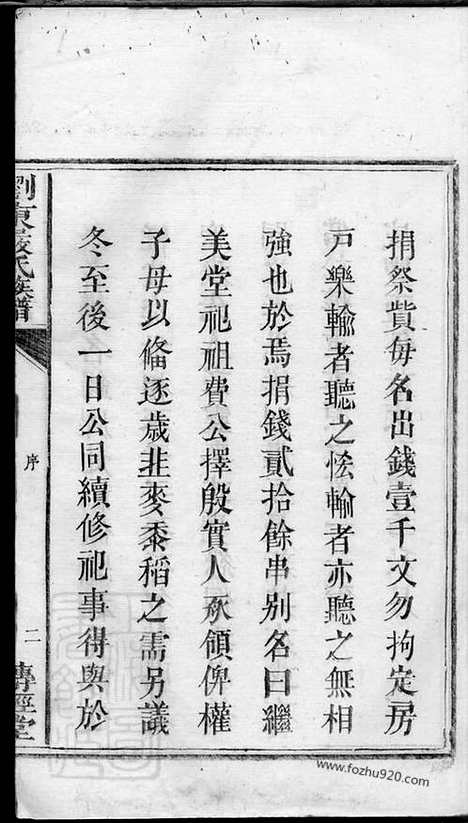 捐祭貲每名出錢壹千文勿拘定房
戸樂輸者聽之恡輸者亦聽之無相
強也於焉捐錢貳拾餘串别名曰繼
美堂祀祖費公擇殷實人承領俾權
子母以俻逐歲韭麥黍稻之需另議
冬至後一日公同續修祀事得與於
瀏東嚴氏族譜
序
二
傳經堂
www.fozhu920.com